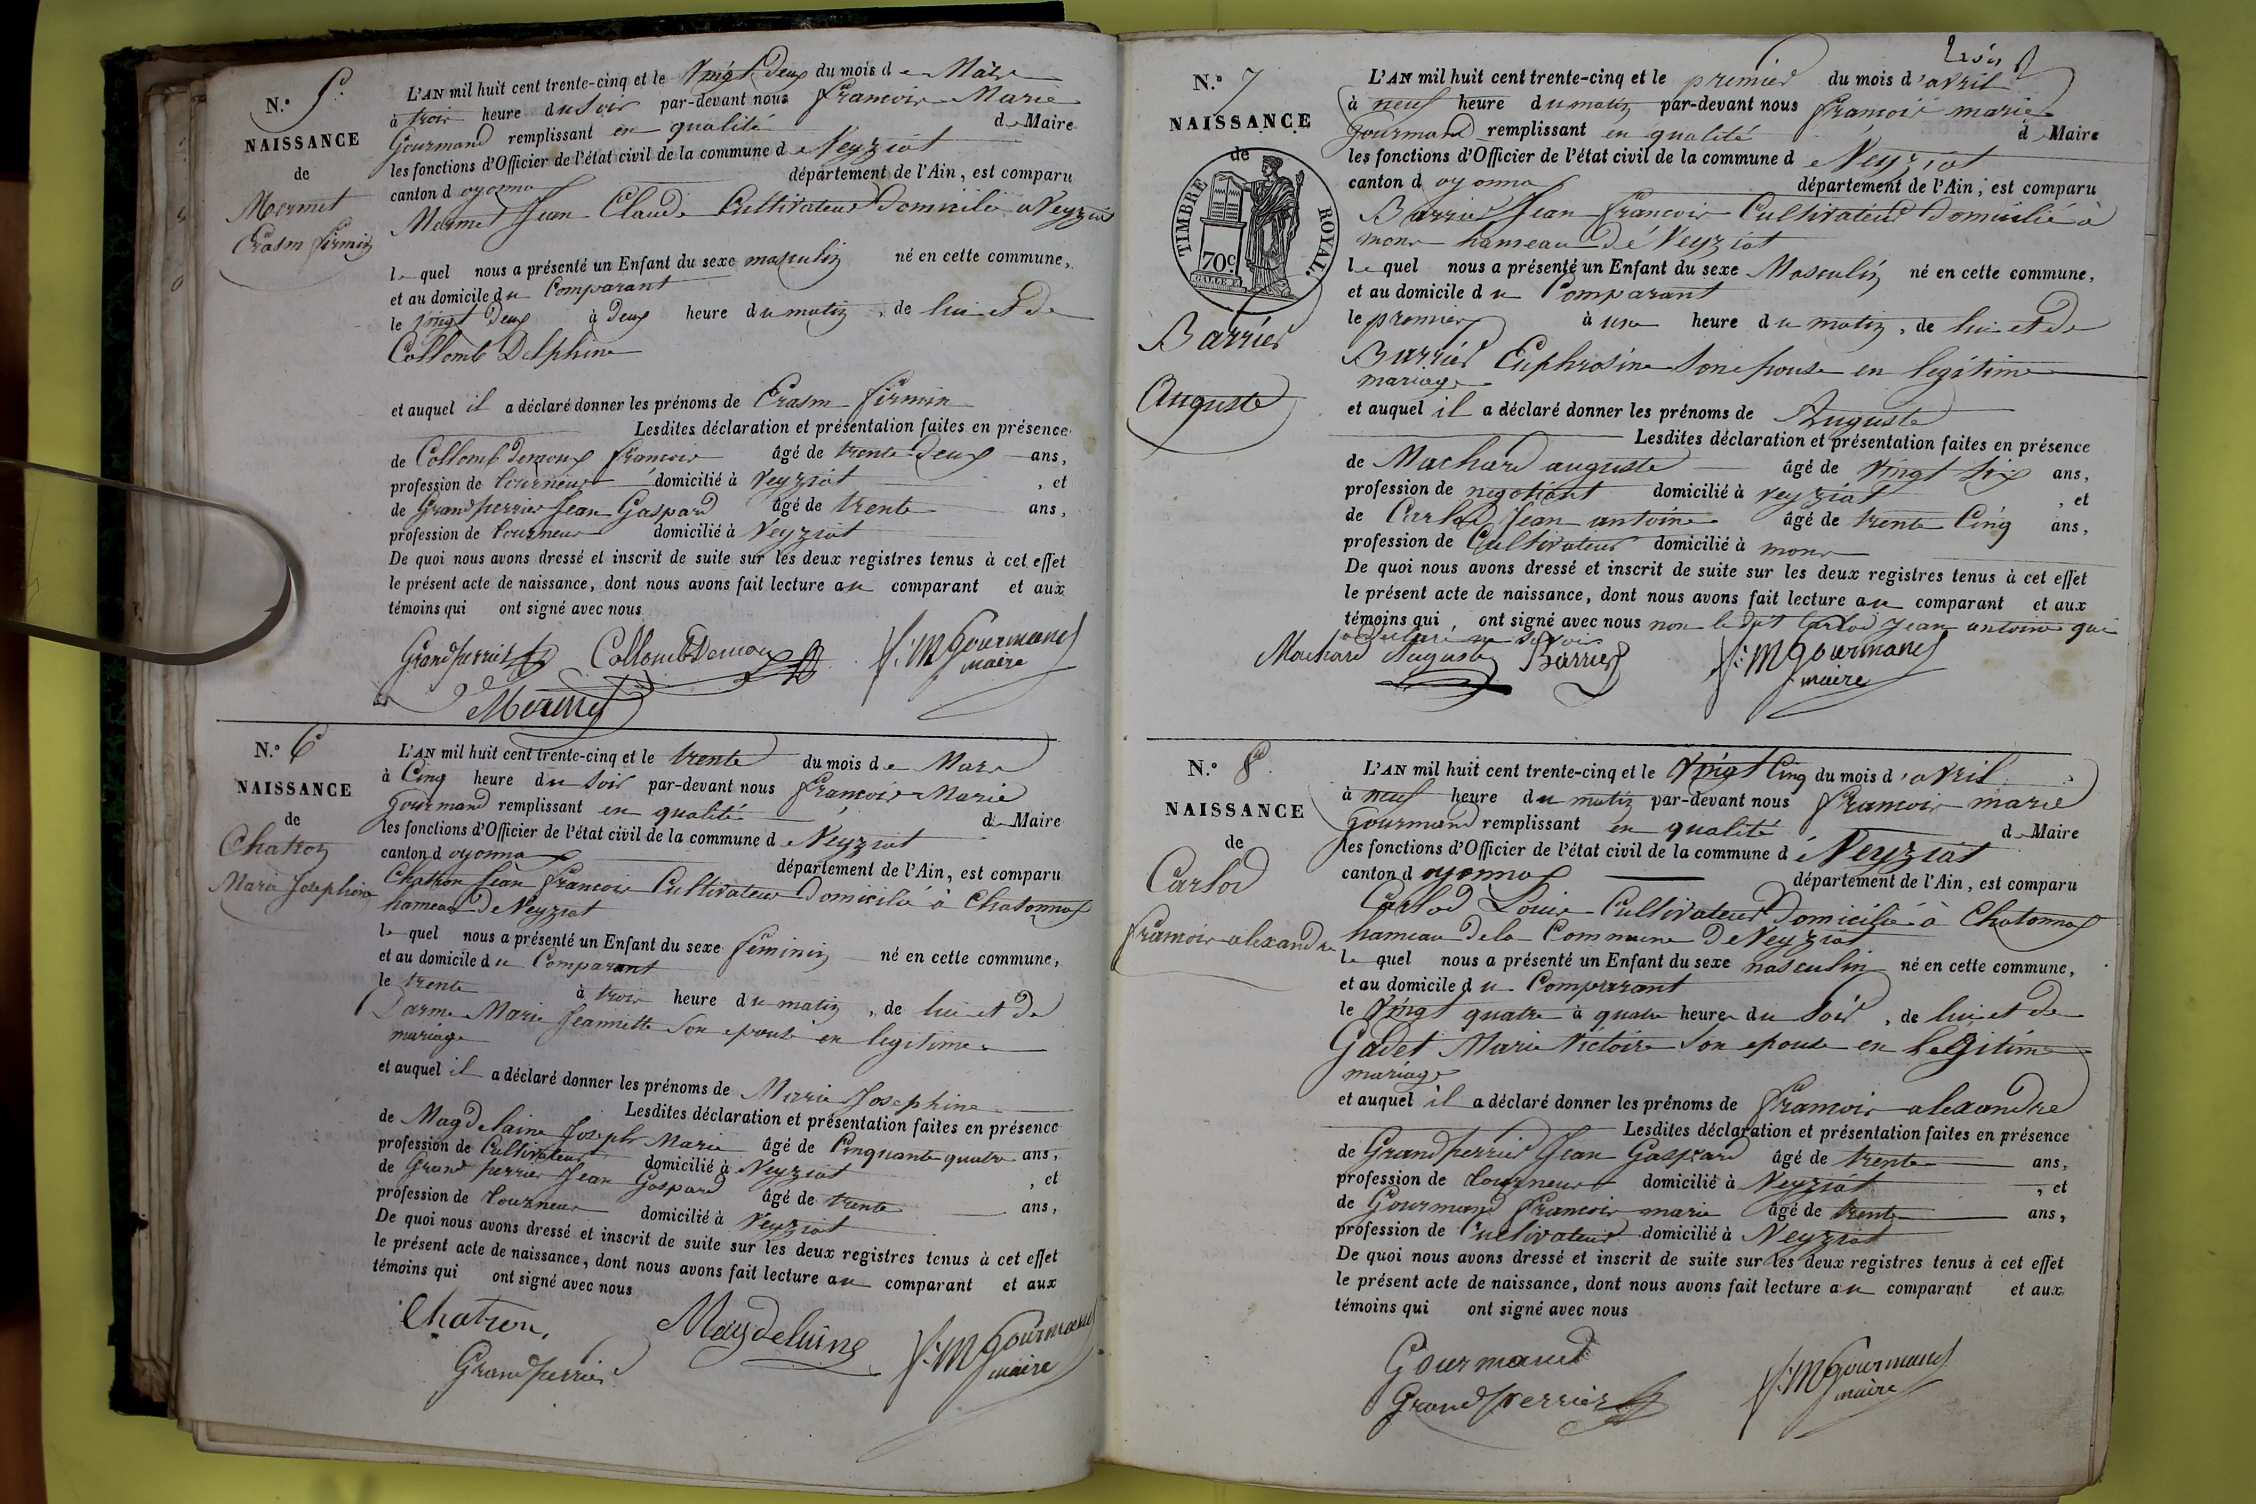 N.° 5.
NAISSANCE
de
Mermet
Erasm firmin
L'AN mil huit cent trente-cinq et le vingt deux du mois de Mars
à trois heure du soir par-devant nous francois Marie
Gourmand remplissant en qualité de Maire
les fonctions d'Officier de l'état civil de la commune de Veyziat
canton d oyonna département de l'Ain, est comparu
Mermet Jean Claude Cultivateur Domicilié a Veyziat
lequel nous a présenté un Enfant du sexe masculin né en cette commune,
et au domicile du Comparant
le vingt deux à deux heure du matin, de lui et de
Collomb Delphine
et auquel il a déclaré donner les prénoms de Erasm firmin
Lesdites déclaration et présentation faites en présence
de Collomb demoux francois âgé de trente deux ans,
profession de tourneur domicilié à Veyziat, et
de Grandperrier Jean Gaspard âgé de trente ans,
profession de tourneur domicilié à Veyziat
De quoi nous avons dressé et inscrit de suite sur les deux registres tenus à cet effet
le présent acte de naissance, dont nous avons fait lecture au comparant et aux
témoins qui ont signé avec nous
Grandperrier Collomb Demoux f: M Gourmand
maire
Mermet
N.° 6
NAISSANCE
de
Chatron
Marie Josephine
L'AN mil huit cent trente-cinq et le trente du mois de Mars
à Cinq heure du soir par-devant nous francois Marie
Gourmand remplissant en qualité de Maire
les fonctions d'Officier de l'état civil de la commune de Veyziat
canton d oyonnax département de l'Ain, est comparu
Chatron Jean francois Cultivateur Domicilié à Chatonnax
hameau De Veyziat
lequel nous a présenté un Enfant du sexe féminin né en cette commune,
et au domicile du Comparant
le trente à trois heure du matin, de lui et de
Darme Marie Jeannette Son epouse en legitime
mariage
et auquel il a déclaré donner les prénoms de Marie Josephine
Lesdites déclaration et présentation faites en présence
de Magdelaine Joseph Marie âgé de Cinquante quatre ans,
profession de Cultivateur domicilié à Veyziat, et
de Grand perrier Jean Gaspard âgé de trente ans,
profession de tourneur domicilié à Veyziat
De quoi nous avons dressé et inscrit de suite sur les deux registres tenus à cet effet
le présent acte de naissance, dont nous avons fait lecture au comparant et aux
témoins qui ont signé avec nous
Chatron, Magdelaine f: M Gourmand
Grandperrier maire
trois
N.° 7
NAISSANCE
de
TIMBRE ROYAL.
70 c.
Barrier
Auguste
L'AN mil huit cent trente-cinq et le premier du mois d'avril
à neuf heure du matin par-devant nous francois marie
Gourmand remplissant en qualité de Maire
les fonctions d'Officier de l'état civil de la commune de Veyziat
canton d oyonna département de l'Ain, est comparu
Barrier Jean francois Cultivateur Domicilié à
mons hameau De Veyziat
lequel nous a présenté un Enfant du sexe Masculin né en cette commune,
et au domicile du Comparant
le premier à une heure du matin, de lui et de
Barrier Euphrosine Son epouse en legitime
mariage
et auquel il a déclaré donner les prénoms de Auguste
Lesdites déclaration et présentation faites en présence
de Machard auguste âgé de vingt six ans,
profession de negotiant domicilié à veyziat, et
de Carlod Jean antoine âgé de trente Cinq ans,
profession de Cultivateur domicilié à mons
De quoi nous avons dressé et inscrit de suite sur les deux registres tenus à cet effet
le présent acte de naissance, dont nous avons fait lecture au comparant et aux
témoins qui, ont signé avec nous non ledit Carlod Jean antoine qui
a declaré ne savoir
Machard Auguste Barrier f: M Gourmand
maire
N.° 8
NAISSANCE
de
Carlod
francois alexandre
L'AN mil huit cent trente-cinq et le vingt Cinq du mois d'avril
à neuf heure du matin par-devant nous francois marie
Gourmand remplissant en qualité de Maire
les fonctions d'Officier de l'état civil de la commune de Veyziat
canton d oyonnax département de l'Ain, est comparu
Carlod Louis Cultivateur Domicilié à Chatonnax
hameau de la Commune De Veyziat
lequel nous a présenté un Enfant du sexe masculin né en cette commune,
et au domicile du Comparant
le vingt quatre à quatre heure du soir, de lui et de
Gadet Marie Victoire Son epouse en Legitime
mariage
et auquel il a déclaré donner les prénoms de francois alexandre
Lesdites déclaration et présentation faites en présence
de Grandperrier Jean Gaspard âgé de trente ans,
profession de tourneur domicilié à Veyziat, et
de Gourmand francois marie âgé de trente ans,
profession de Cultivateur domicilié à Veyziat
De quoi nous avons dressé et inscrit de suite sur les deux registres tenus à cet effet
le présent acte de naissance, dont nous avons fait lecture au comparant et aux
témoins qui ont signé avec nous
Gourmand f: M Gourmand
Grandperrier maire